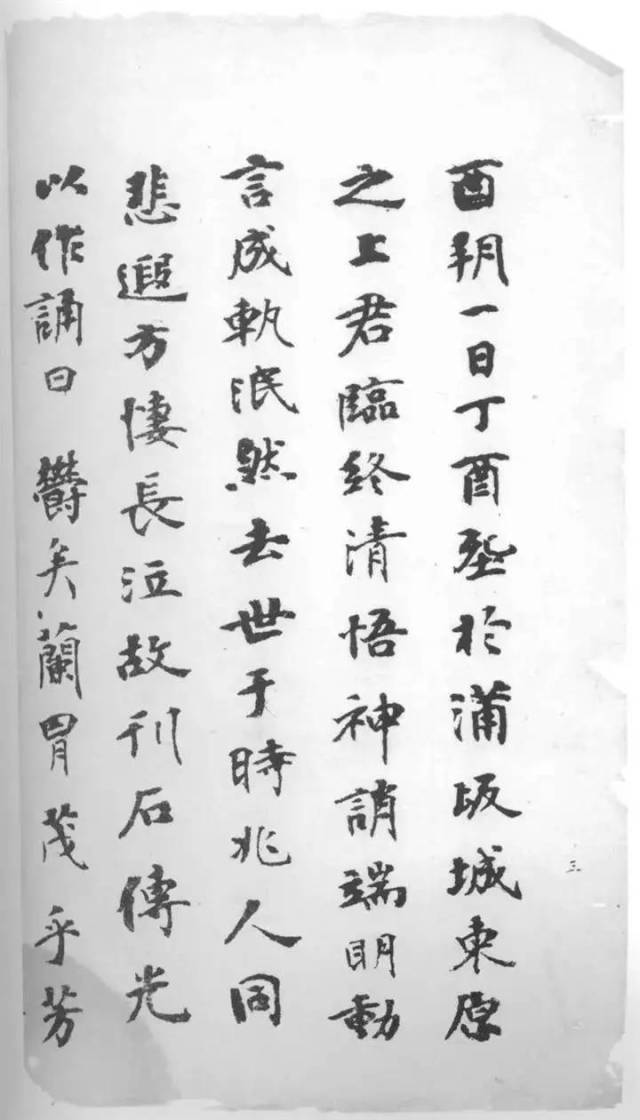 酉朔一日丁酉塟於蒲坂城東原
之上君臨終清悟神誚端明動
言成軌泯然去世于時兆人同
悲遐方悽長泣故刊石傳光
以作誦曰 鬱矣蘭胄茂乎芳
三